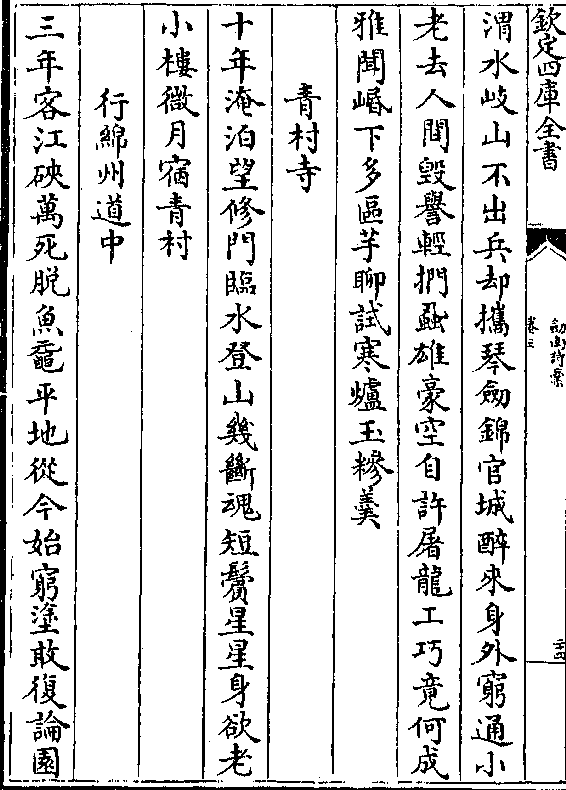 欽定四庫全書
劍南詩藁
卷三
二十四
渭水岐山不出兵却攜琴劒錦官城醉來身外窮通小
老去人間毀譽輕捫蝨雄豪空自許屠龍工巧竟何成
雅聞岷下多區芋聊試寒爐玉糝羹
青村寺
十年淹泊望修門臨水登山幾斷魂短鬢星星身欲老
小樓微月宿青村
行綿州道中
三年客江硤萬死脱魚黿平地從今始窮塗敢復論園